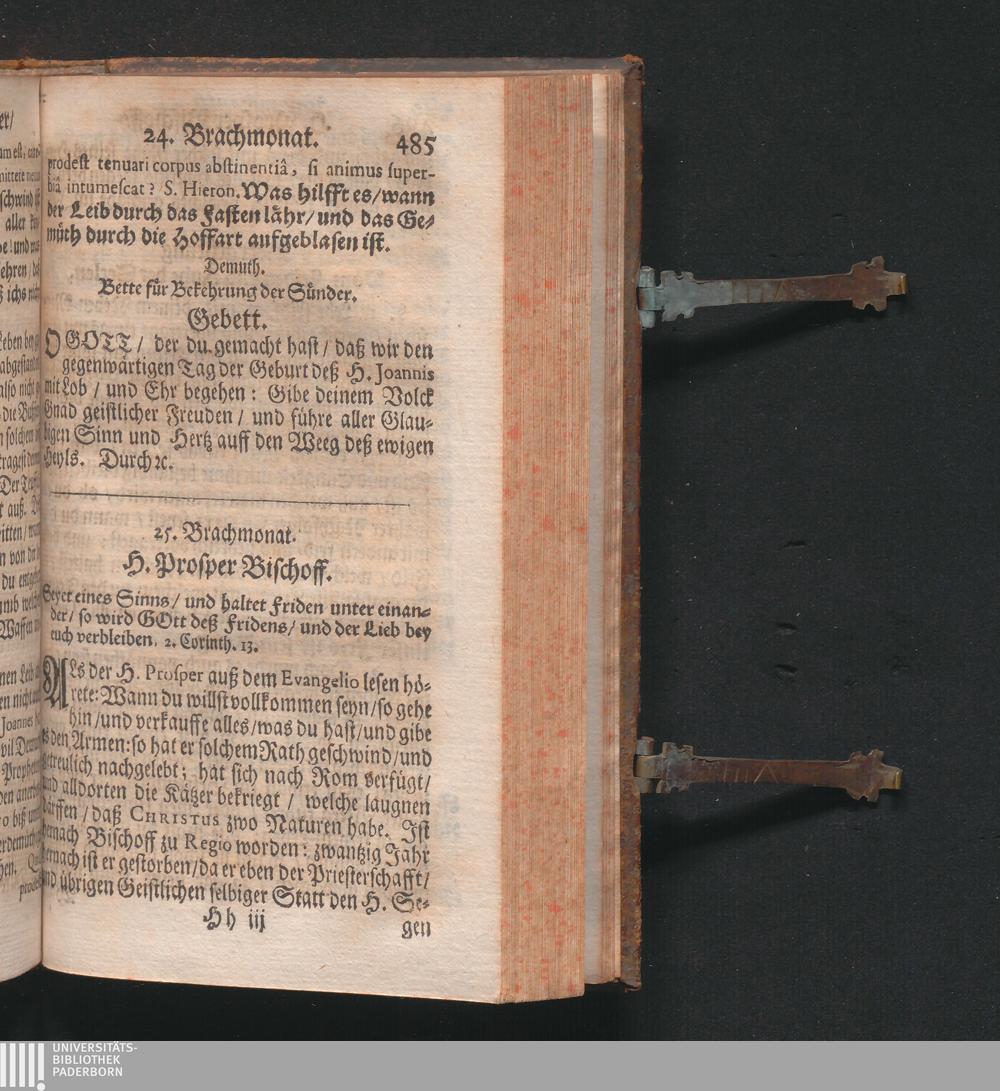 24. Brachmonat. 485
prodest tenuari corpus abstinentiâ, si animus super-
biâ intumescat? S. Hieron. Was hilfft es/wann
der Leib durch das Fasten lähr/und das Ge-
müth durch die Hoffart aufgeblasen ist.
Demuth.
Bette für Bekehrung der Sünder.
Gebett.
O GOTT/ der du gemacht hast/ daß wir den
gegenwärtigen Tag der Geburt deß H. Joannis
mit Lob/ und Ehr begehen: Gibe deinem Volck
Gnad geistlicher Freuden/ und führe aller Glau-
bigen Sinn und Hertz auff den Weeg deß ewigen
Heyls. Durch ꝛc.
25. Brachmonat.
H. Prosper Bischoff.
Seyet eines Sinns/ und haltet Friden unter einan-
der/ so wird GOtt deß Fridens/ und der Lieb bey
euch verbleiben. 2. Corinth. 13.
Als der H. Prosper auß dem Evangelio lesen hö-
rete: Wann du willst vollkommen seyn/so gehe
hin/und verkauffe alles/was du hast/und gibe
es den Armen: so hat er solchem Rath geschwind/und
getreulich nachgelebt; hat sich nach Rom verfügt/
und alldorten die Kätzer bekriegt/ welche laugnen
därffen/daß CHRISTUS zwo Naturen habe. Ist
hernach Bischoff zu Regio worden: zwantzig Jahr
hernach ist er gestorben/da er eben der Priesterschafft/
und übrigen Geistlichen selbiger Statt den H. Se-
Hh iij gen
UNIVERSITÄTS-
BIBLIOTHEK
PADERBORN